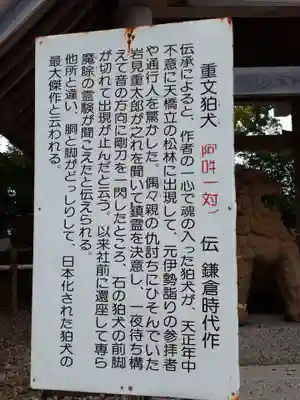 重文狛犬(阿吽一対)伝 鎌倉時代作
伝承によると、作者の一心で魂の入った狛犬が、天正年中
不意に天橋立の松林に出現して、元伊勢詣りの参拝者
や通行人を驚かした。偶々親の仇討ちにひそんでいた
岩見重太郎が之れを聞いて鎮霊を決意し、一夜待ち構
えて音の方向に剛刀を一閃したところ、石の狛犬の前脚
が切れて出現が止んだと云う。以来社前に還座して専ら
魔除の霊験が聞こえたと伝えられる。
他所と違い、胴と脚がどっしりして、日本化された狛犬の
最大傑作と云われる。